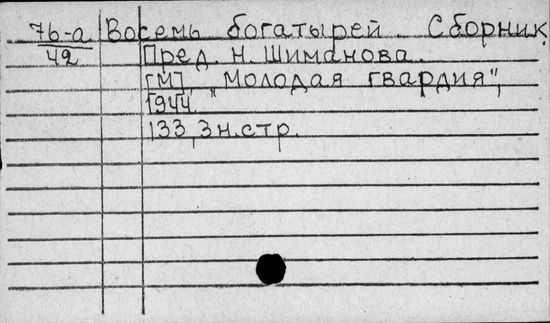 76-а Восемь богатырей. Сборник.
42 Пред. Н. Шиманова.
[М] "Молодая гвардия",
1944.
133, 3 н. стр.